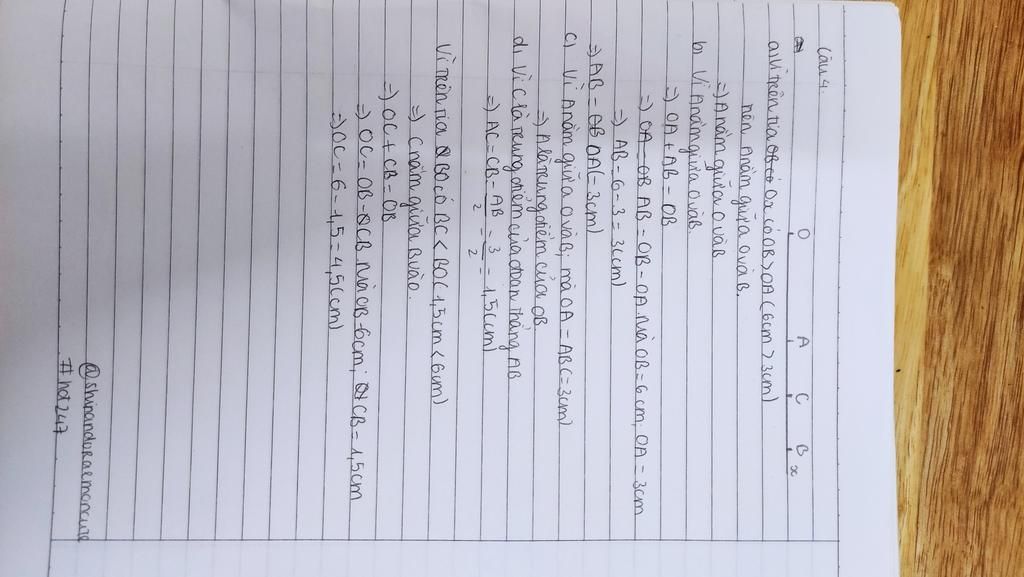 Câu 4:
O A C B x
a) Vì trên tia Ox có OB > OA (6cm > 3cm)
nên A nằm giữa O và B.
=> A nằm giữa O và B
b) Vì A nằm giữa O và B.
=> OA + AB = OB
=> AB = OB - OA. Mà OB = 6cm; OA = 3cm
=> AB = 6 - 3 = 3(cm)
=> AB = OA (= 3cm)
c) Vì A nằm giữa O và B; mà OA = AB (= 3cm)
=> A là trung điểm của OB
d) Vì C là trung điểm của đoạn thẳng AB
=> AC = CB = AB/2 = 3/2 = 1,5(cm)
Vì trên tia BO có BC < BO (1,5cm < 6cm)
=> C nằm giữa B và O.
=> OC + CB = OB
=> OC = OB - CB. Mà OB = 6cm; CB = 1,5cm
=> OC = 6 - 1,5 = 4,5(cm)
@shinandoraemoncute
#hd247